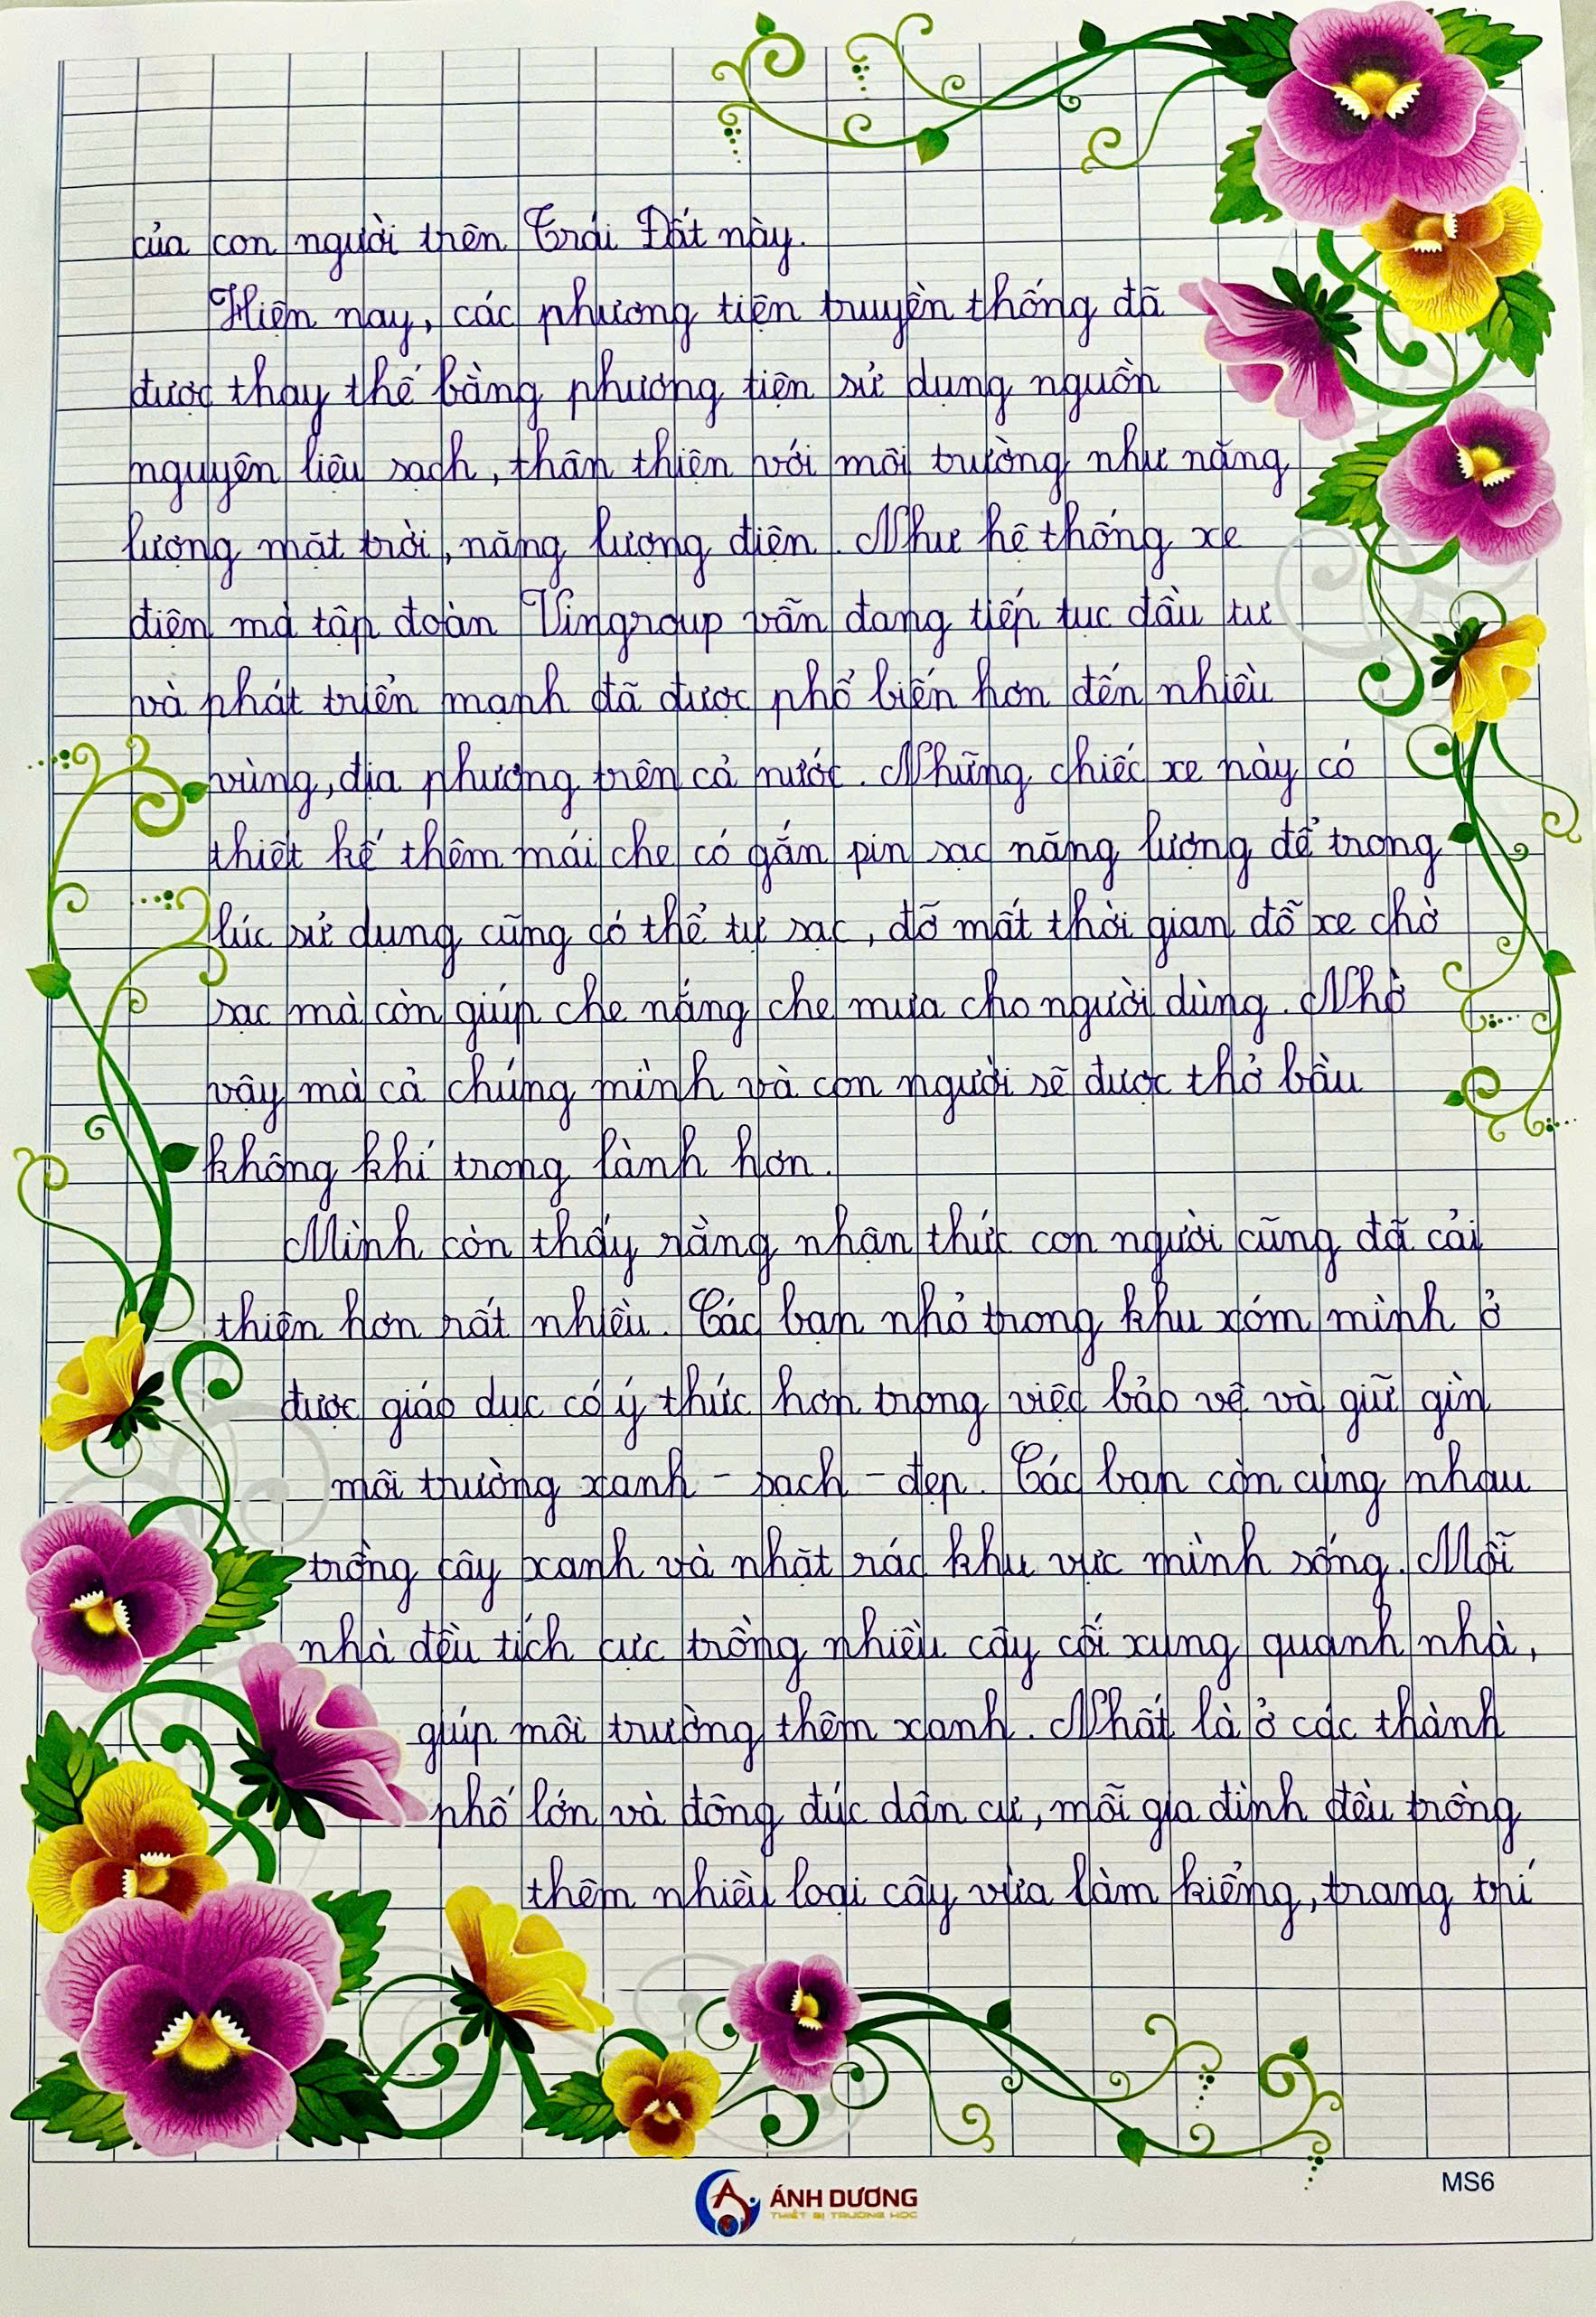 của con người trên Trái Đất này.
Hiện nay, các phương tiện truyền thống đã
được thay thế bằng phương tiện sử dụng nguồn
nguyên liệu sạch, thân thiện với môi trường như năng
lượng mặt trời, năng lượng điện. Như hệ thống xe
điện mà tập đoàn Vingroup vẫn đang tiếp tục đầu tư
và phát triển mạnh đã được phổ biến hơn đến nhiều
vùng, địa phương trên cả nước. Những chiếc xe này có
thiết kế thêm mái che có gắn pin sạc năng lượng để trong
lúc sử dụng cũng có thể tự sạc, đỡ mất thời gian đỗ xe chờ
sạc mà còn giúp che nắng che mưa cho người dùng. Nhờ
vậy mà cả chúng mình và con người sẽ được thở bầu
không khí trong lành hơn.
Mình còn thấy rằng nhận thức con người cũng đã cải
thiện hơn rất nhiều. Các bạn nhỏ trong khu xóm mình ở
được giáo dục có ý thức hơn trong việc bảo vệ và giữ gìn
môi trường xanh - sạch - đẹp. Các bạn còn cùng nhau
trồng cây xanh và nhặt rác khu vực mình sống. Mỗi
nhà đều tích cực trồng nhiều cây cối xung quanh nhà,
giúp môi trường thêm xanh. Nhất là ở các thành
phố lớn và đông đúc dân cư, mỗi gia đình đều trồng
thêm nhiều loại cây vừa làm kiểng, trang trí
MS6
ÁNH DƯƠNG
THIẾT BỊ TRƯỜNG HỌC